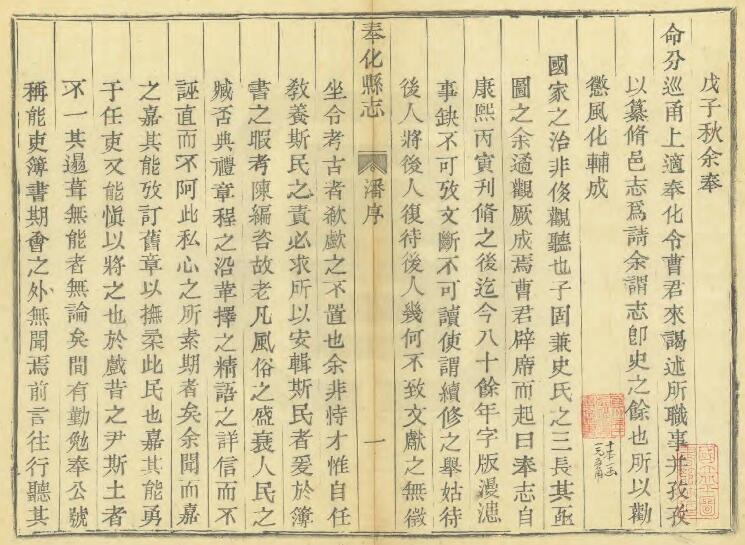 戊子秋余奉
命分巡甬上適奉化令曹君來謁述所職事并孜孜
以纂脩邑志爲請余謂志卽史之餘也所以勸
懲風化輔成
國家之治非侈觀聽也子固兼史氏之三長其亟
圖之余邇觀厥成焉曹君辟席而起曰奉志自
康熙丙寅刋脩之後迄今八十餘年字版漫漶
事缺不可攷文斷不可讀使謂續修之舉姑待
後人將後人復待後人幾何不致文獻之無徵
奉化縣志
潘序
一
坐令考古者欷歔之不置也余非恃才惟自任
敎養斯民之責必求所以安輯斯民者爰於簿
書之暇考陳編咨故老凡風俗之盛衰人民之
臧否典禮章程之沿革擇之精語之詳信而不
誣直而不阿此私心之所素期者矣余聞而嘉
之嘉其能攷訂舊章以撫柔此民也嘉其能勇
于任吏又能愼以將之也於戲昔之尹斯土者
不一其邊葺無能者無論矣間有勤勉奉公號
稱能吏簿書期會之外無聞焉前言往行聽其